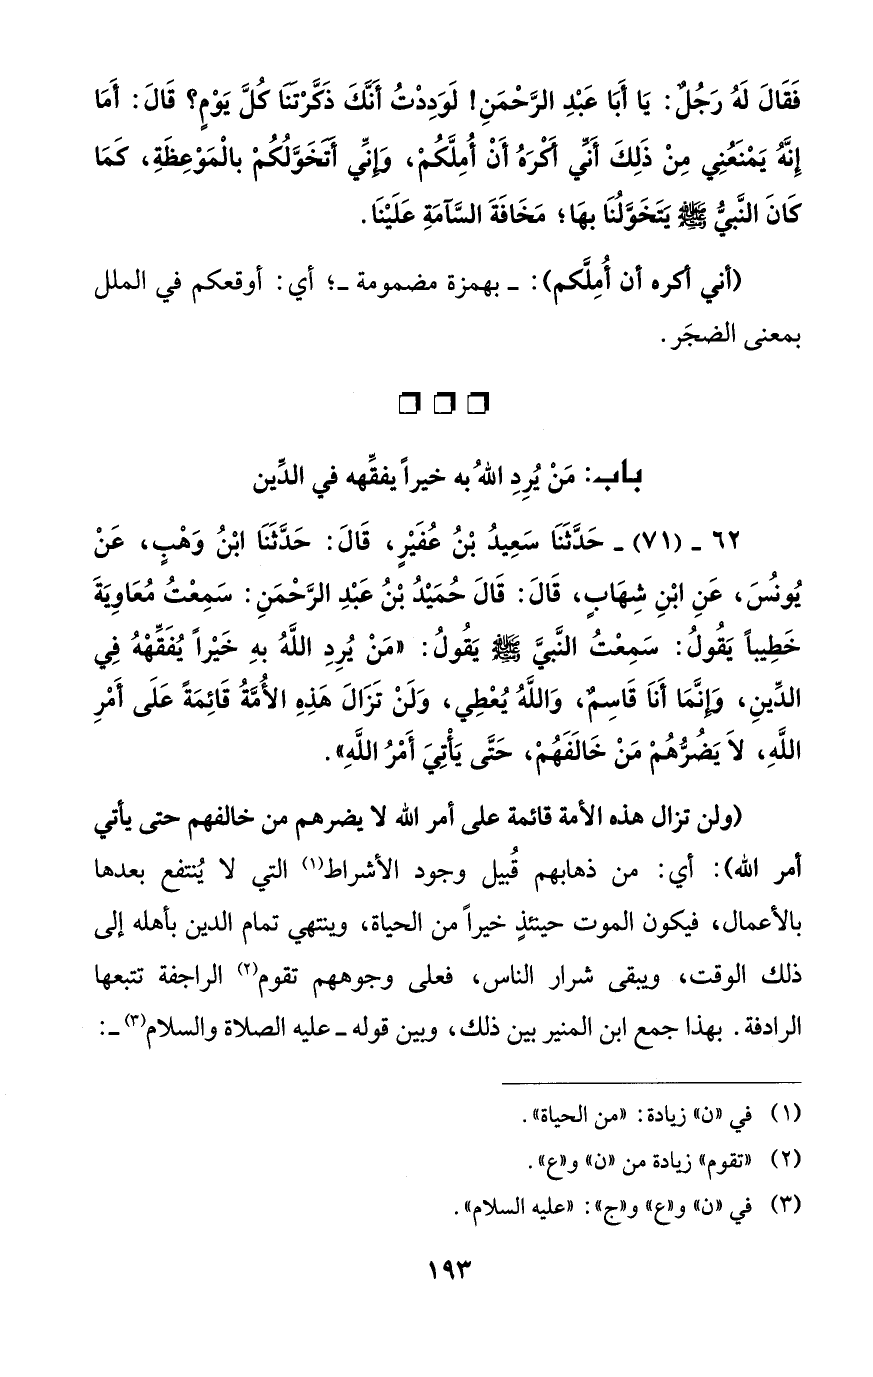 فَقَالَ لَهُ رَجُلٌ: يَا أَبَا عَبْدِ الرَّحْمَنِ! لَوَدِدْتُ أَنَّكَ ذَكَّرْتَنَا كُلَّ يَوْمٍ؟ قَالَ: أَمَا
إِنَّهُ يَمْنَعُنِي مِنْ ذَلِكَ أَنِّي أَكْرَهُ أَنْ أُمِلَّكُمْ، وَإِنِّي أَتَخَوَّلُكُمْ بِالْمَوْعِظَةِ، كَمَا
كَانَ النَّبِيُّ ﷺ يَتَخَوَّلُنَا بِهَا؛ مَخَافَةَ السَّآمَةِ عَلَيْنَا.
(أني أكره أن أُمِلَّكم): ـ بهمزة مضمومة ـ؛ أي: أوقعكم في الملل
بمعنى الضجَر.
باب: مَنْ يُرِدِ اللهُ به خيراً يفقِّهه في الدِّين
٦٢ ـ (٧١) ـ حَدَّثَنَا سَعِيدُ بْنُ عُفَيْرٍ، قَالَ: حَدَّثَنَا ابْنُ وَهْبٍ، عَنْ
يُونُسَ، عَنِ ابْنِ شِهَابٍ، قَالَ: قَالَ حُمَيْدُ بْنُ عَبْدِ الرَّحْمَنِ: سَمِعْتُ مُعَاوِيَةَ
خَطِيباً يَقُولُ: سَمِعْتُ النَّبِيَّ ﷺ يَقُولُ: «مَنْ يُرِدِ اللَّهُ بِهِ خَيْراً يُفَقِّهْهُ فِي
الدِّينِ، وَإِنَّمَا أَنَا قَاسِمٌ، وَاللَّهُ يُعْطِي، وَلَنْ تَزَالَ هَذِهِ الأُمَّةُ قَائِمَةً عَلَى أَمْرِ
اللَّهِ، لاَ يَضُرُّهُمْ مَنْ خَالَفَهُمْ، حَتَّى يَأْتِيَ أَمْرُ اللَّهِ».
(ولن تزال هذه الأمة قائمة على أمر الله لا يضرهم من خالفهم حتى يأتي
أمر الله): أي: من ذهابهم قُبيل وجود الأشراط(١) التي لا يُنتفع بعدها
بالأعمال، فيكون الموت حينئذٍ خيراً من الحياة، وينتهي تمام الدين بأهله إلى
ذلك الوقت، ويبقى شرار الناس، فعلى وجوههم تقوم(٢) الراجفة تتبعها
الرادفة. بهذا جمع ابن المنير بين ذلك، وبين قوله ـ عليه الصلاة والسلام(٣) ـ:
(١) في «ن» زيادة: «من الحياة».
(٢) «تقوم» زيادة من «ن» و«ع».
(٣) في «ن» و«ع» و«ج»: «عليه السلام».
١٩٣